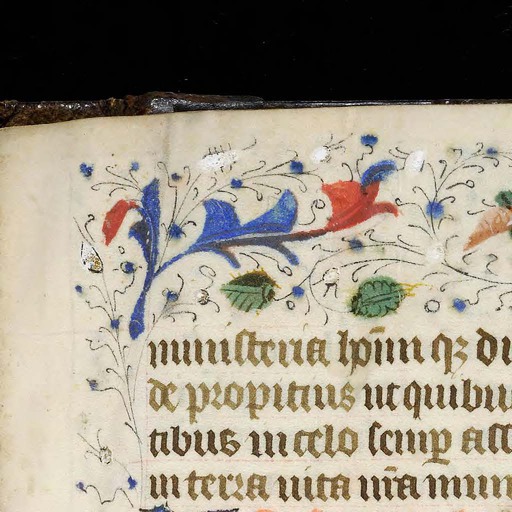 ministeria hoim qꝫ di
de propitius ut quibu
tibus in celo semꝑ ass
in terra uita nr̄a mun